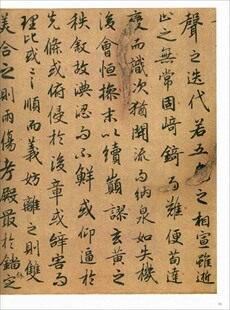 聲之迭代若五色之相宣雖逝
止之無常固崎錡而難便苟達
變而識次猶開流而納泉如失機
後會恒操末以續顛謬玄黃之
秩叙故淟涊而不鮮或仰逼於
先條或俯侵於後章或辭害而
理比或言順而義妨離之則雙
美合之則兩傷考殿最於錙銖